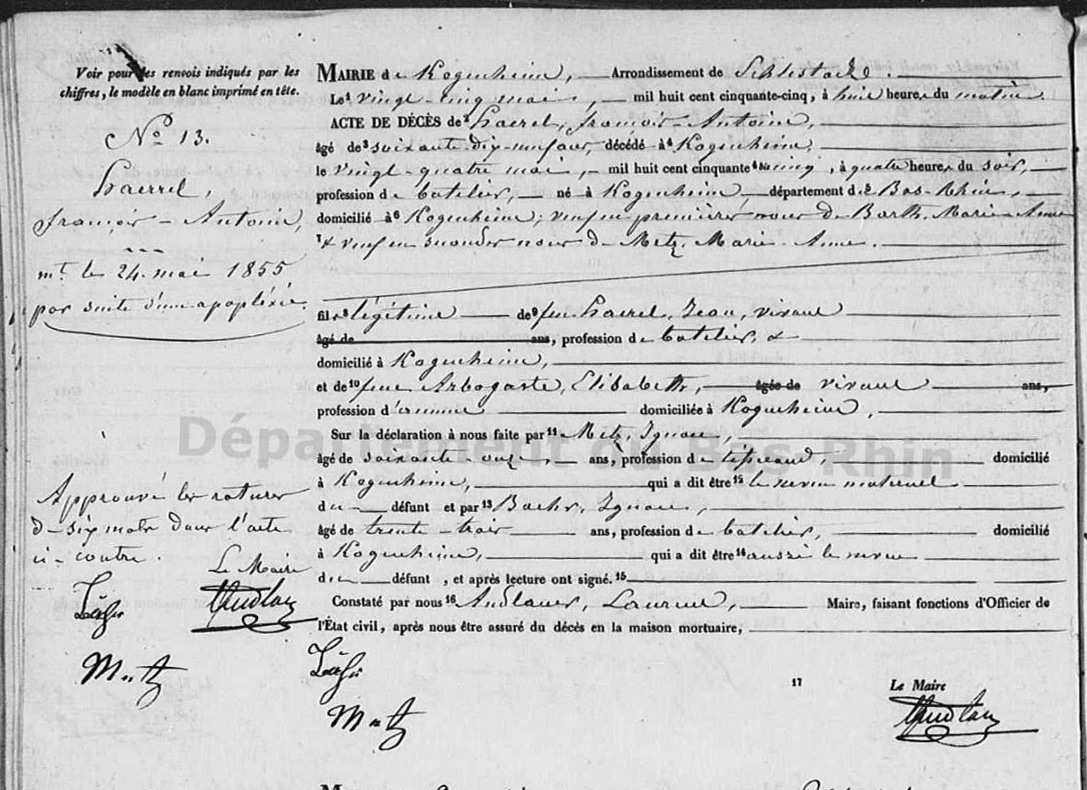 Voir pour les renvois indiqués par les
chiffres, le modèle en blanc imprimé en tête.
Nº 13.
Haerrel,
françois-Antoine,
mt. le 24. mai 1855
par suite d'une apopléxie.
MAIRIE de Kogenheim, Arrondissement de Schlestadt.
Le¹ vingt-cinq mai, mil huit cent cinquante-cinq, à huit heures du matin
ACTE DE DÉCÈS de² Haerel, françois-Antoine,
âgé de³ soixante-dix-neuf ans, décédé à⁴ Kogenheim,
le vingt-quatre mai, mil huit cent cinquante cinq, à quatre heures du soir,
profession de batelier, né à Kogenheim, département de Bas-Rhin,
domicilié à⁶ Kogenheim; veuf en premières noces de Barth, Marie-Anne
⁷& veuf en secondes noces de Metz, Marie-Anne.
fils⁸ légitime de⁹ feu Haerel, Jean, vivant
âgé de ans, profession de batelier, &
domicilié à Kogenheim,
et de¹⁰ feue Arbogaste, Elisabeth, âgée de vivant ans,
profession d' domiciliée à Kogenheim,
Sur la déclaration à nous faite par¹¹ Metz, Ignace,
âgé de soixante-onze ans, profession de tisserand, domicilié
à Kogenheim, qui a dit être¹² le neveu maternel
du défunt et par¹³ Ignace,
âgé de trente-trois ans, profession de batelier, domicilié
à Kogenheim, qui a dit être¹⁴ aussi le neveu
du défunt, et après lecture ont signé.¹⁵
Constaté par nous¹⁶ Andlauer, Laurent, Maire, faisant fonctions d'Officier de
l'État civil, après nous être assuré du décès en la maison mortuaire,
Approuvé les ratures
de six mots dans l'acte
ci-contre.
Le Maire
Andlauer
Metz
Metz
17
Le Maire
Andlauer
Département du Bas-Rhin